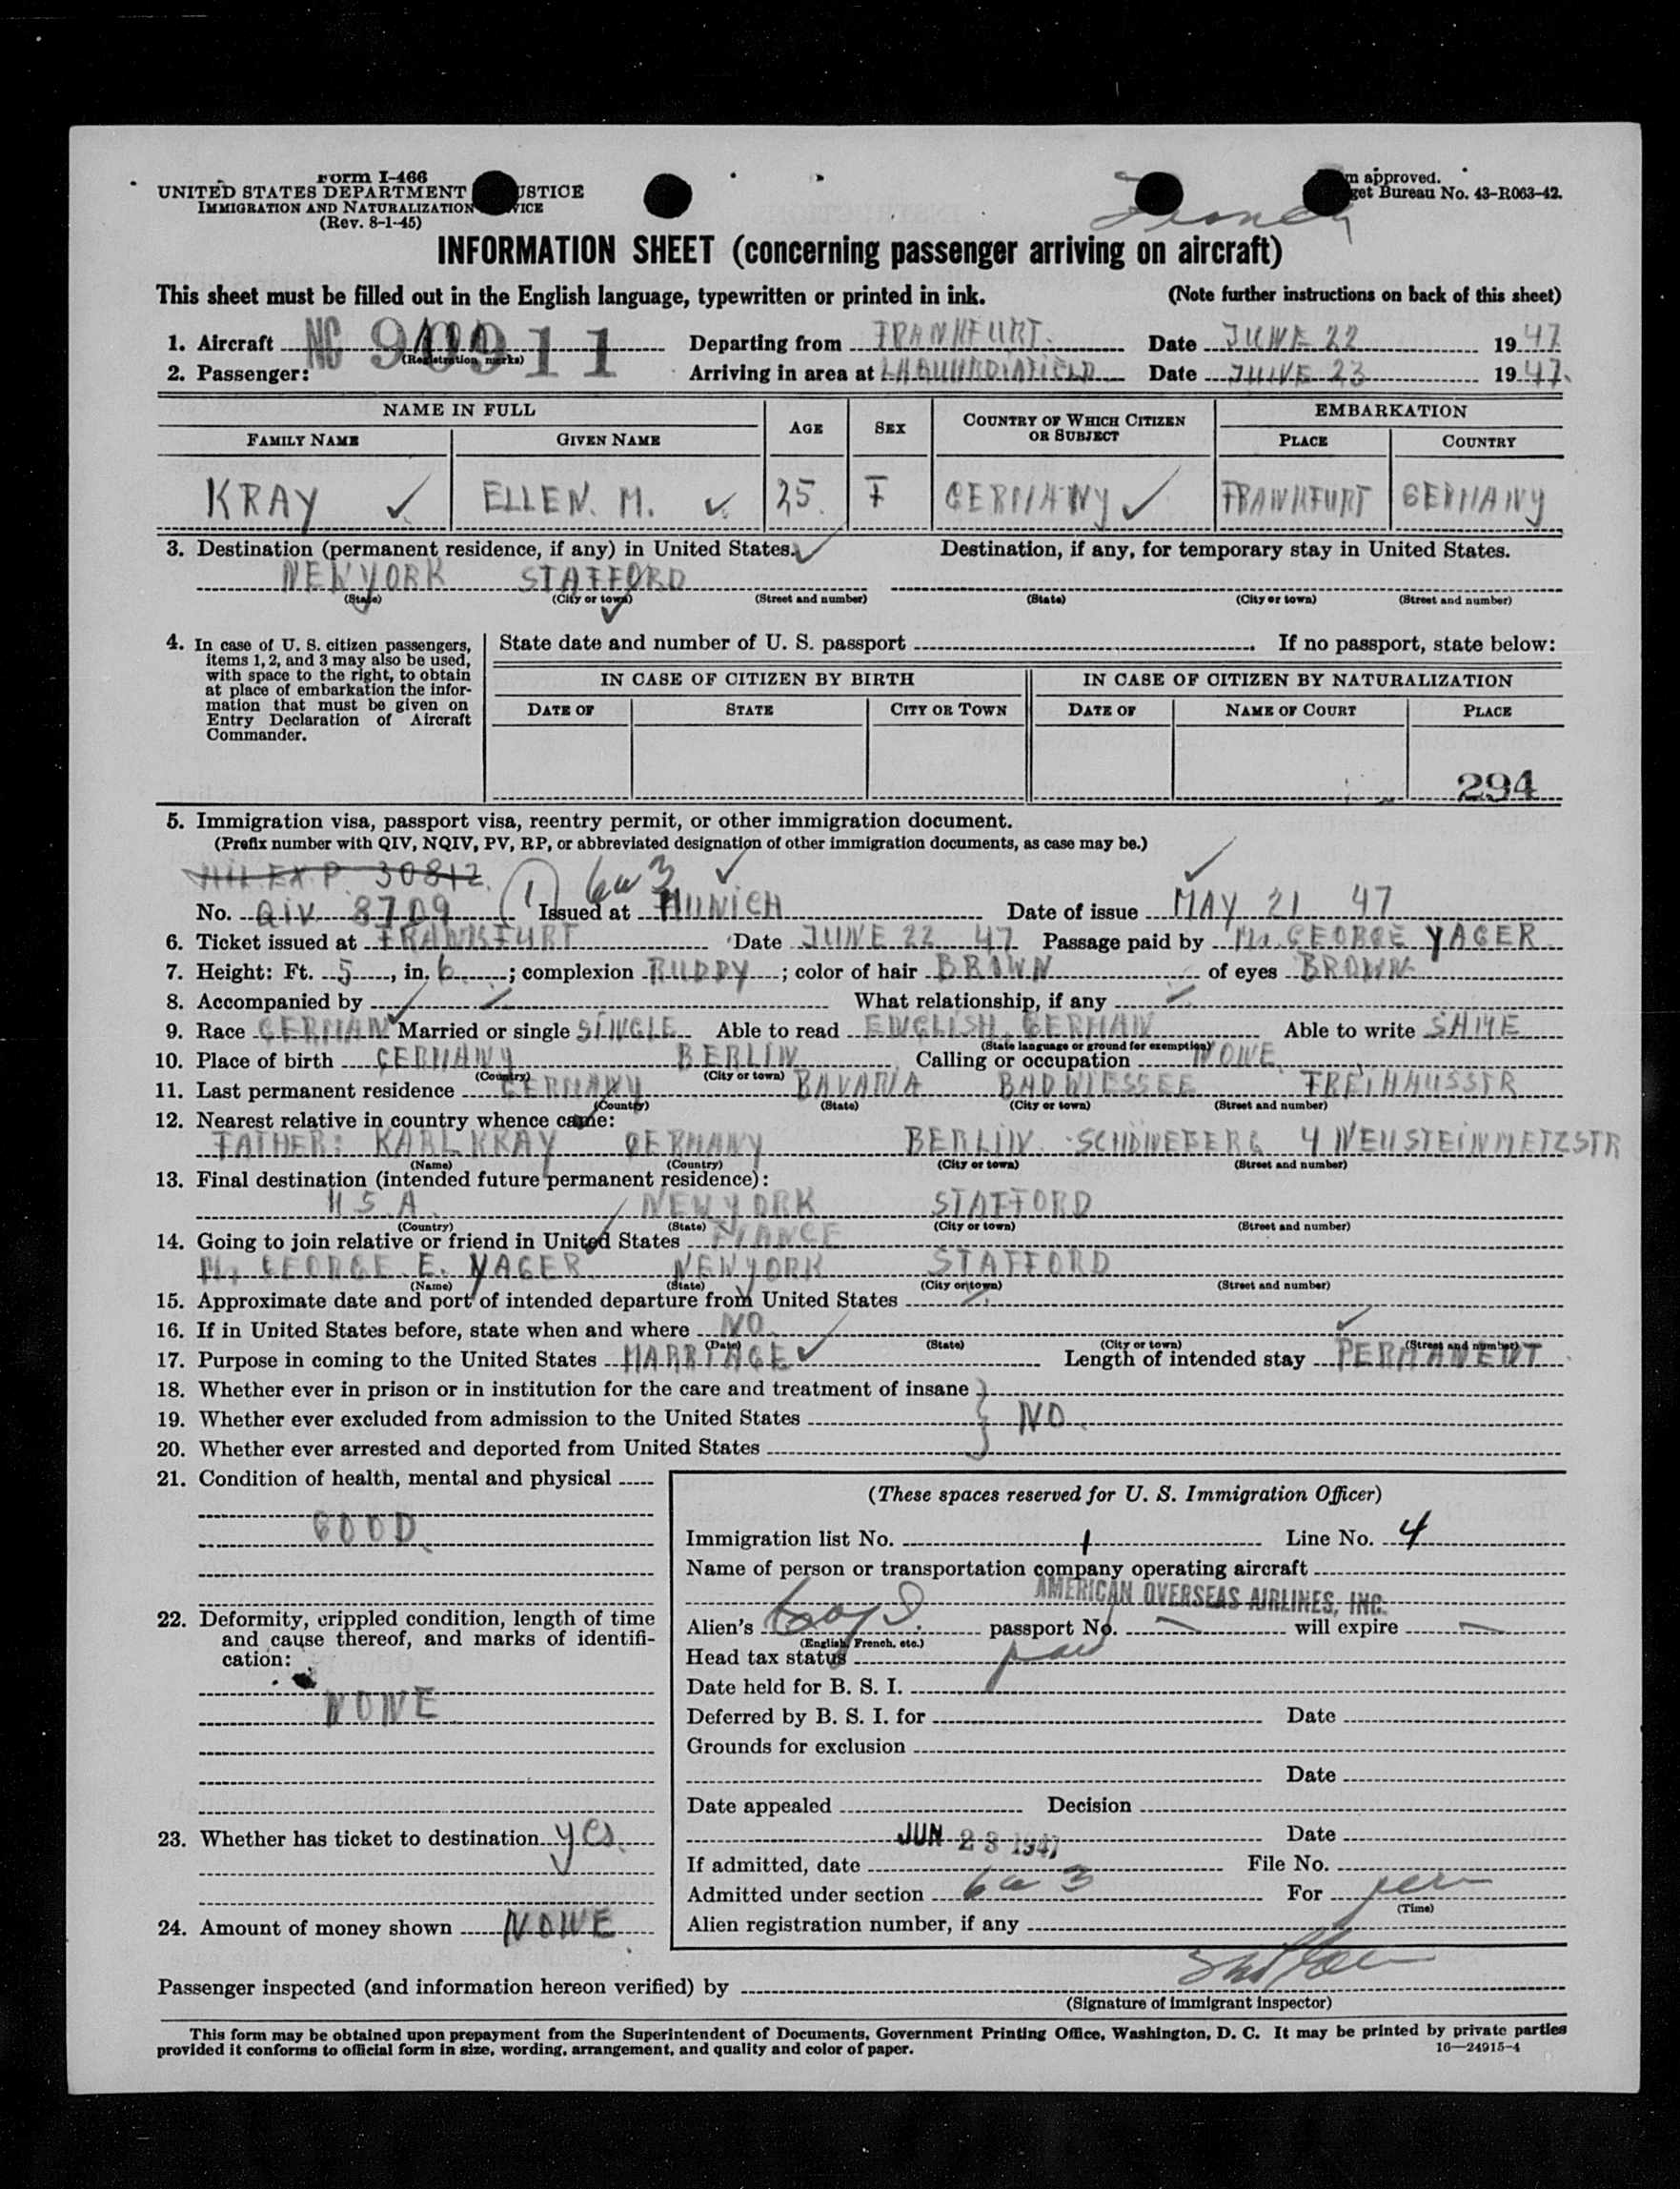 Form I-466
UNITED STATES DEPARTMENT JUSTICE
IMMIGRATION AND NATURALIZATION SERVICE
(Rev. 8-1-45)
Form approved.
Budget Bureau No. 43-R063-42.
INFORMATION SHEET (concerning passenger arriving on aircraft)
This sheet must be filled out in the English language, typewritten or printed in ink. (Note further instructions on back of this sheet)
1. Aircraft NC 90911 Departing from FRANKFURT. Date JUNE 22 1947
(Registration marks)
2. Passenger: Arriving in area at LAGUARDIAFIELD Date JUNE 23 1947.
NAME IN FULL AGE SEX COUNTRY OF WHICH CITIZEN OR SUBJECT EMBARKATION
FAMILY NAME GIVEN NAME PLACE COUNTRY
KRAY ELLEN. M. 25. F GERMANY FRANKFURT GERMANY
3. Destination (permanent residence, if any) in United States. Destination, if any, for temporary stay in United States.
NEW YORK STAFFORD
(State) (City or town) (Street and number) (State) (City or town) (Street and number)
4. In case of U. S. citizen passengers, items 1, 2, and 3 may also be used, with space to the right, to obtain at place of embarkation the information that must be given on Entry Declaration of Aircraft Commander.
State date and number of U. S. passport . If no passport, state below:
IN CASE OF CITIZEN BY BIRTH IN CASE OF CITIZEN BY NATURALIZATION
DATE OF STATE CITY OR TOWN DATE OF NAME OF COURT PLACE
294
5. Immigration visa, passport visa, reentry permit, or other immigration document.
(Prefix number with QIV, NQIV, PV, RP, or abbreviated designation of other immigration documents, as case may be.)
MIL. EX. P. 30812. (1) 6a3
No. QIV. 8709 Issued at MUNICH Date of issue MAY 21 47
6. Ticket issued at FRANKFURT Date JUNE 22 47 Passage paid by Mr. GEORGE YAGER
7. Height: Ft. 5, in. 6; complexion RUDDY; color of hair BROWN of eyes BROWN
8. Accompanied by What relationship, if any
9. Race GERMAN Married or single SINGLE Able to read ENGLISH, GERMAN Able to write SAME
(State language or ground for exemption)
10. Place of birth GERMANY BERLIN Calling or occupation NONE
(Country) (City or town)
11. Last permanent residence GERMANY BAVARIA BADWIESSEE FREIHAUSSTR
(Country) (State) (City or town) (Street and number)
12. Nearest relative in country whence came:
FATHER: KARL KRAY GERMANY BERLIN. SCHÖNEBERG 4 NEUSTEINMETZSTR
(Name) (Country) (City or town) (Street and number)
13. Final destination (intended future permanent residence):
U.S.A. NEW YORK STAFFORD
(Country) (State) (City or town) (Street and number)
14. Going to join relative or friend in United States FIANCE
Mr GEORGE E. YAGER. NEW YORK STAFFORD
(Name) (State) (City or town) (Street and number)
15. Approximate date and port of intended departure from United States
16. If in United States before, state when and where NO.
(Date) (State) (City or town) (Street and number)
17. Purpose in coming to the United States MARRIAGE Length of intended stay PERMANENT
18. Whether ever in prison or in institution for the care and treatment of insane
19. Whether ever excluded from admission to the United States NO
20. Whether ever arrested and deported from United States
21. Condition of health, mental and physical
GOOD
22. Deformity, crippled condition, length of time and cause thereof, and marks of identification:
NONE
23. Whether has ticket to destination yes.
24. Amount of money shown NONE
(These spaces reserved for U. S. Immigration Officer)
Immigration list No. 1 Line No. 4
Name of person or transportation company operating aircraft
AMERICAN OVERSEAS AIRLINES, INC.
Alien's passport No. will expire
(English, French, etc.)
Head tax status
Date held for B. S. I.
Deferred by B. S. I. for Date
Grounds for exclusion
Date
Date appealed Decision
JUN 23 1947 Date
If admitted, date File No.
Admitted under section 6a3 For per
(Time)
Alien registration number, if any
Passenger inspected (and information hereon verified) by
(Signature of immigrant inspector)
This form may be obtained upon prepayment from the Superintendent of Documents, Government Printing Office, Washington, D. C. It may be printed by private parties
provided it conforms to official form in size, wording, arrangement, and quality and color of paper. 16—24915-4